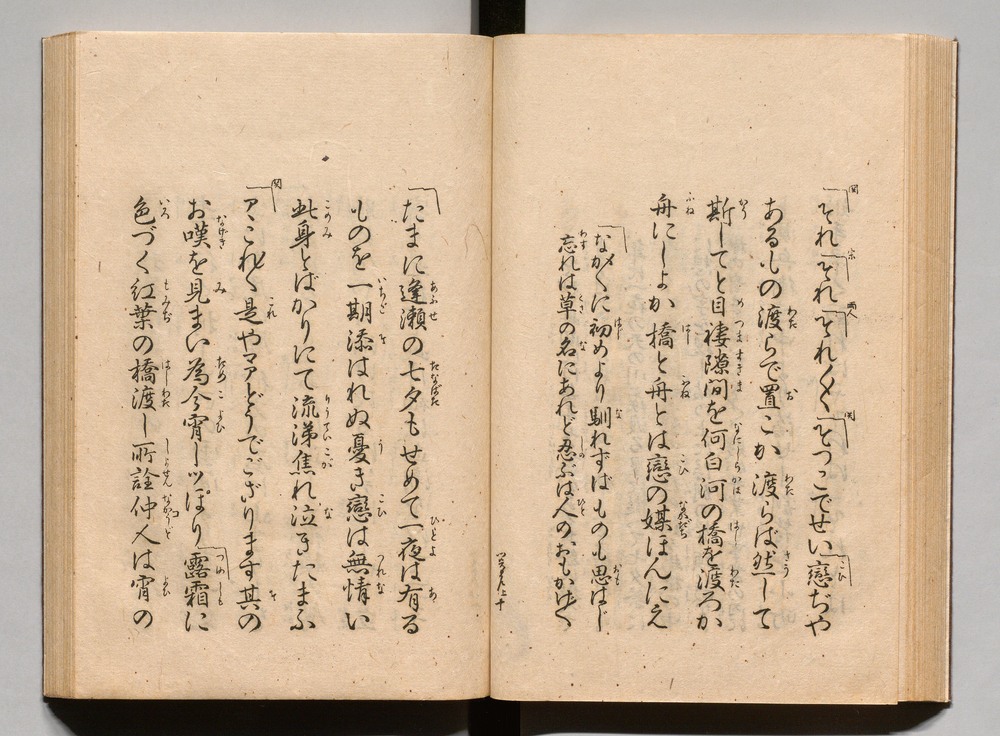 それ〳〵それ〳〵それ〳〵とつこでせい戀ぢや
あるもの渡らで置こか渡らば然して
斯してと目褄隙間を何白河の橋を渡ろか
舟にしよか橋と舟とは戀の媒ほんにえ
なか〳〵に初めより馴れずばものも思はじ
忘れは草の名にあれど忍ぶは人のおもかげ
たまに逢瀬の七夕もせめて一夜は有る
ものを一期添はれぬ憂き戀は無情い
此身とばかりにて流涕焦れ泣きたまふ
アヽこれ〳〵是やマアどうでござります其の
お嘆を見まい為今宵しツぽり露霜に
色づく紅葉の橋渡し所詮仲人は宵の